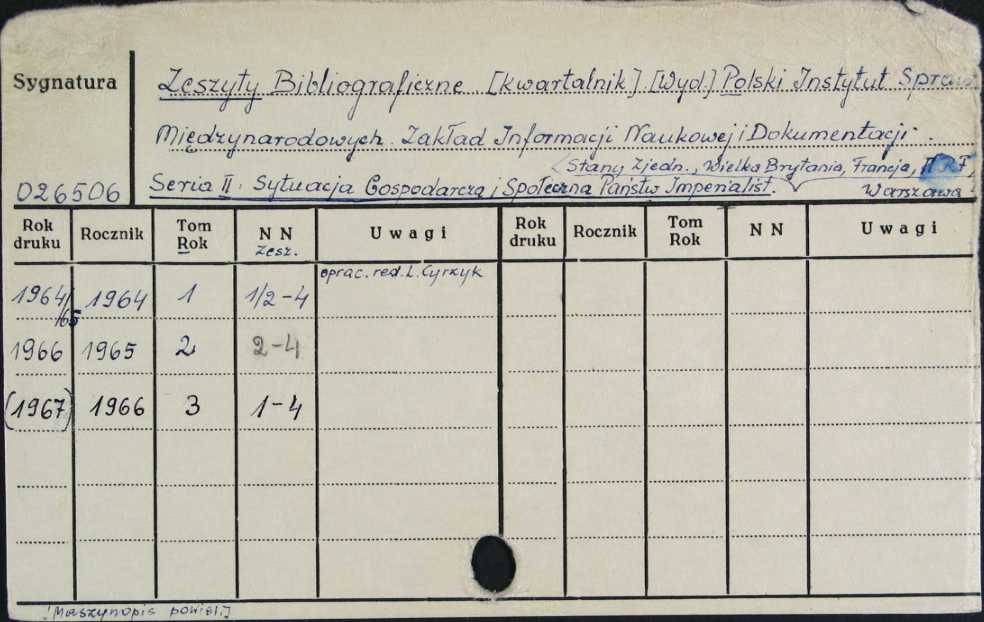 Sygnatura
Zeszyty Bibliograficzne [Kwartalnik] [Wyd.] Polski Instytut Spraw
Międzynarodowych. Zakład Informacji Naukowej i Dokumentacji.
(Stany Zjedn., Wielka Brytania, Francja, NRF)
026506 Seria II: Sytuacja Gospodarcza i Społeczna Państw Imperialist. Warszawa
Rok druku Rocznik Tom Rok N N zesz. Uwagi Rok druku Rocznik Tom Rok N N Uwagi
oprac. red. L. Cyrzyk
1964/65 1964 1 1/2-4
1966 1965 2 2-4
(1967) 1966 3 1-4
[Maszynopis powiel.]